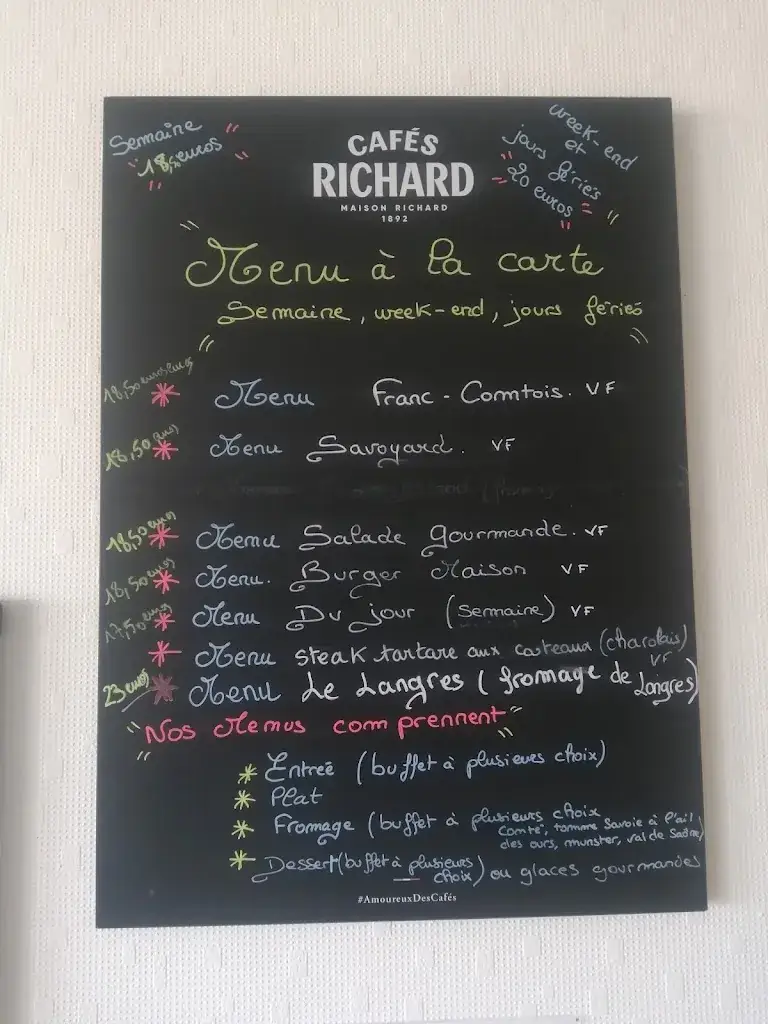 Semaine
18,50 euros
week-end
et
jours fériés
20 euros
CAFÉS
RICHARD
MAISON RICHARD
1892
Menu à la carte
Semaine, week-end, jours fériés
18,50 euros Menu Franc-Comtois. VF
18,50 euros Menu Savoyard. VF
18,50 euros Menu Salade gourmande. VF
18,50 euros Menu. Burger Maison VF
17,50 euros Menu Du jour (Semaine) VF
Menu steak tartare aux couteaux (charolais)
VF
23 euros Menu Le Langres (fromage de Langres)
Nos Menus comprennent
Entreé (buffet à plusieurs choix)
Plat
Fromage (buffet à plusieurs choix
Comté, tomme Savoie à l'ail
des ours, munster, val de Saône)
Dessert (buffet à plusieurs choix) ou glaces gourmandes
#AmoureuxDesCafés